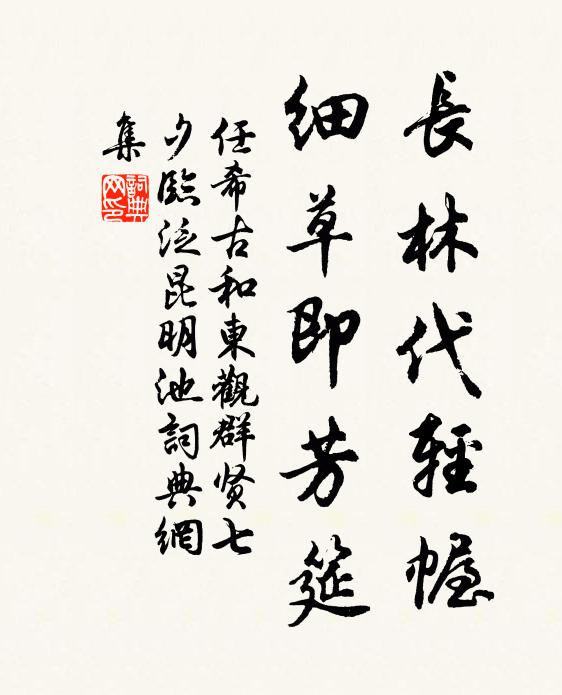 長林代輕幄
細草即芳筵
任希古和東觀群贤七
夕臨泛昆明池詞典網
集
詞典網印